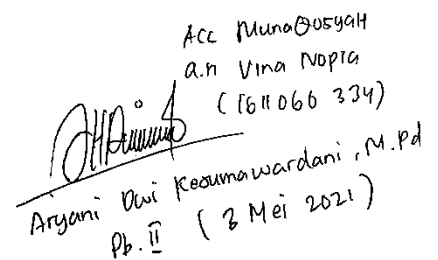 Acc Munaqosyah
a.n Vina Nopia
(1611066 334)
Aryani Dwi Kesumawardani, M.Pd
Pb. II (3 Mei 2021)